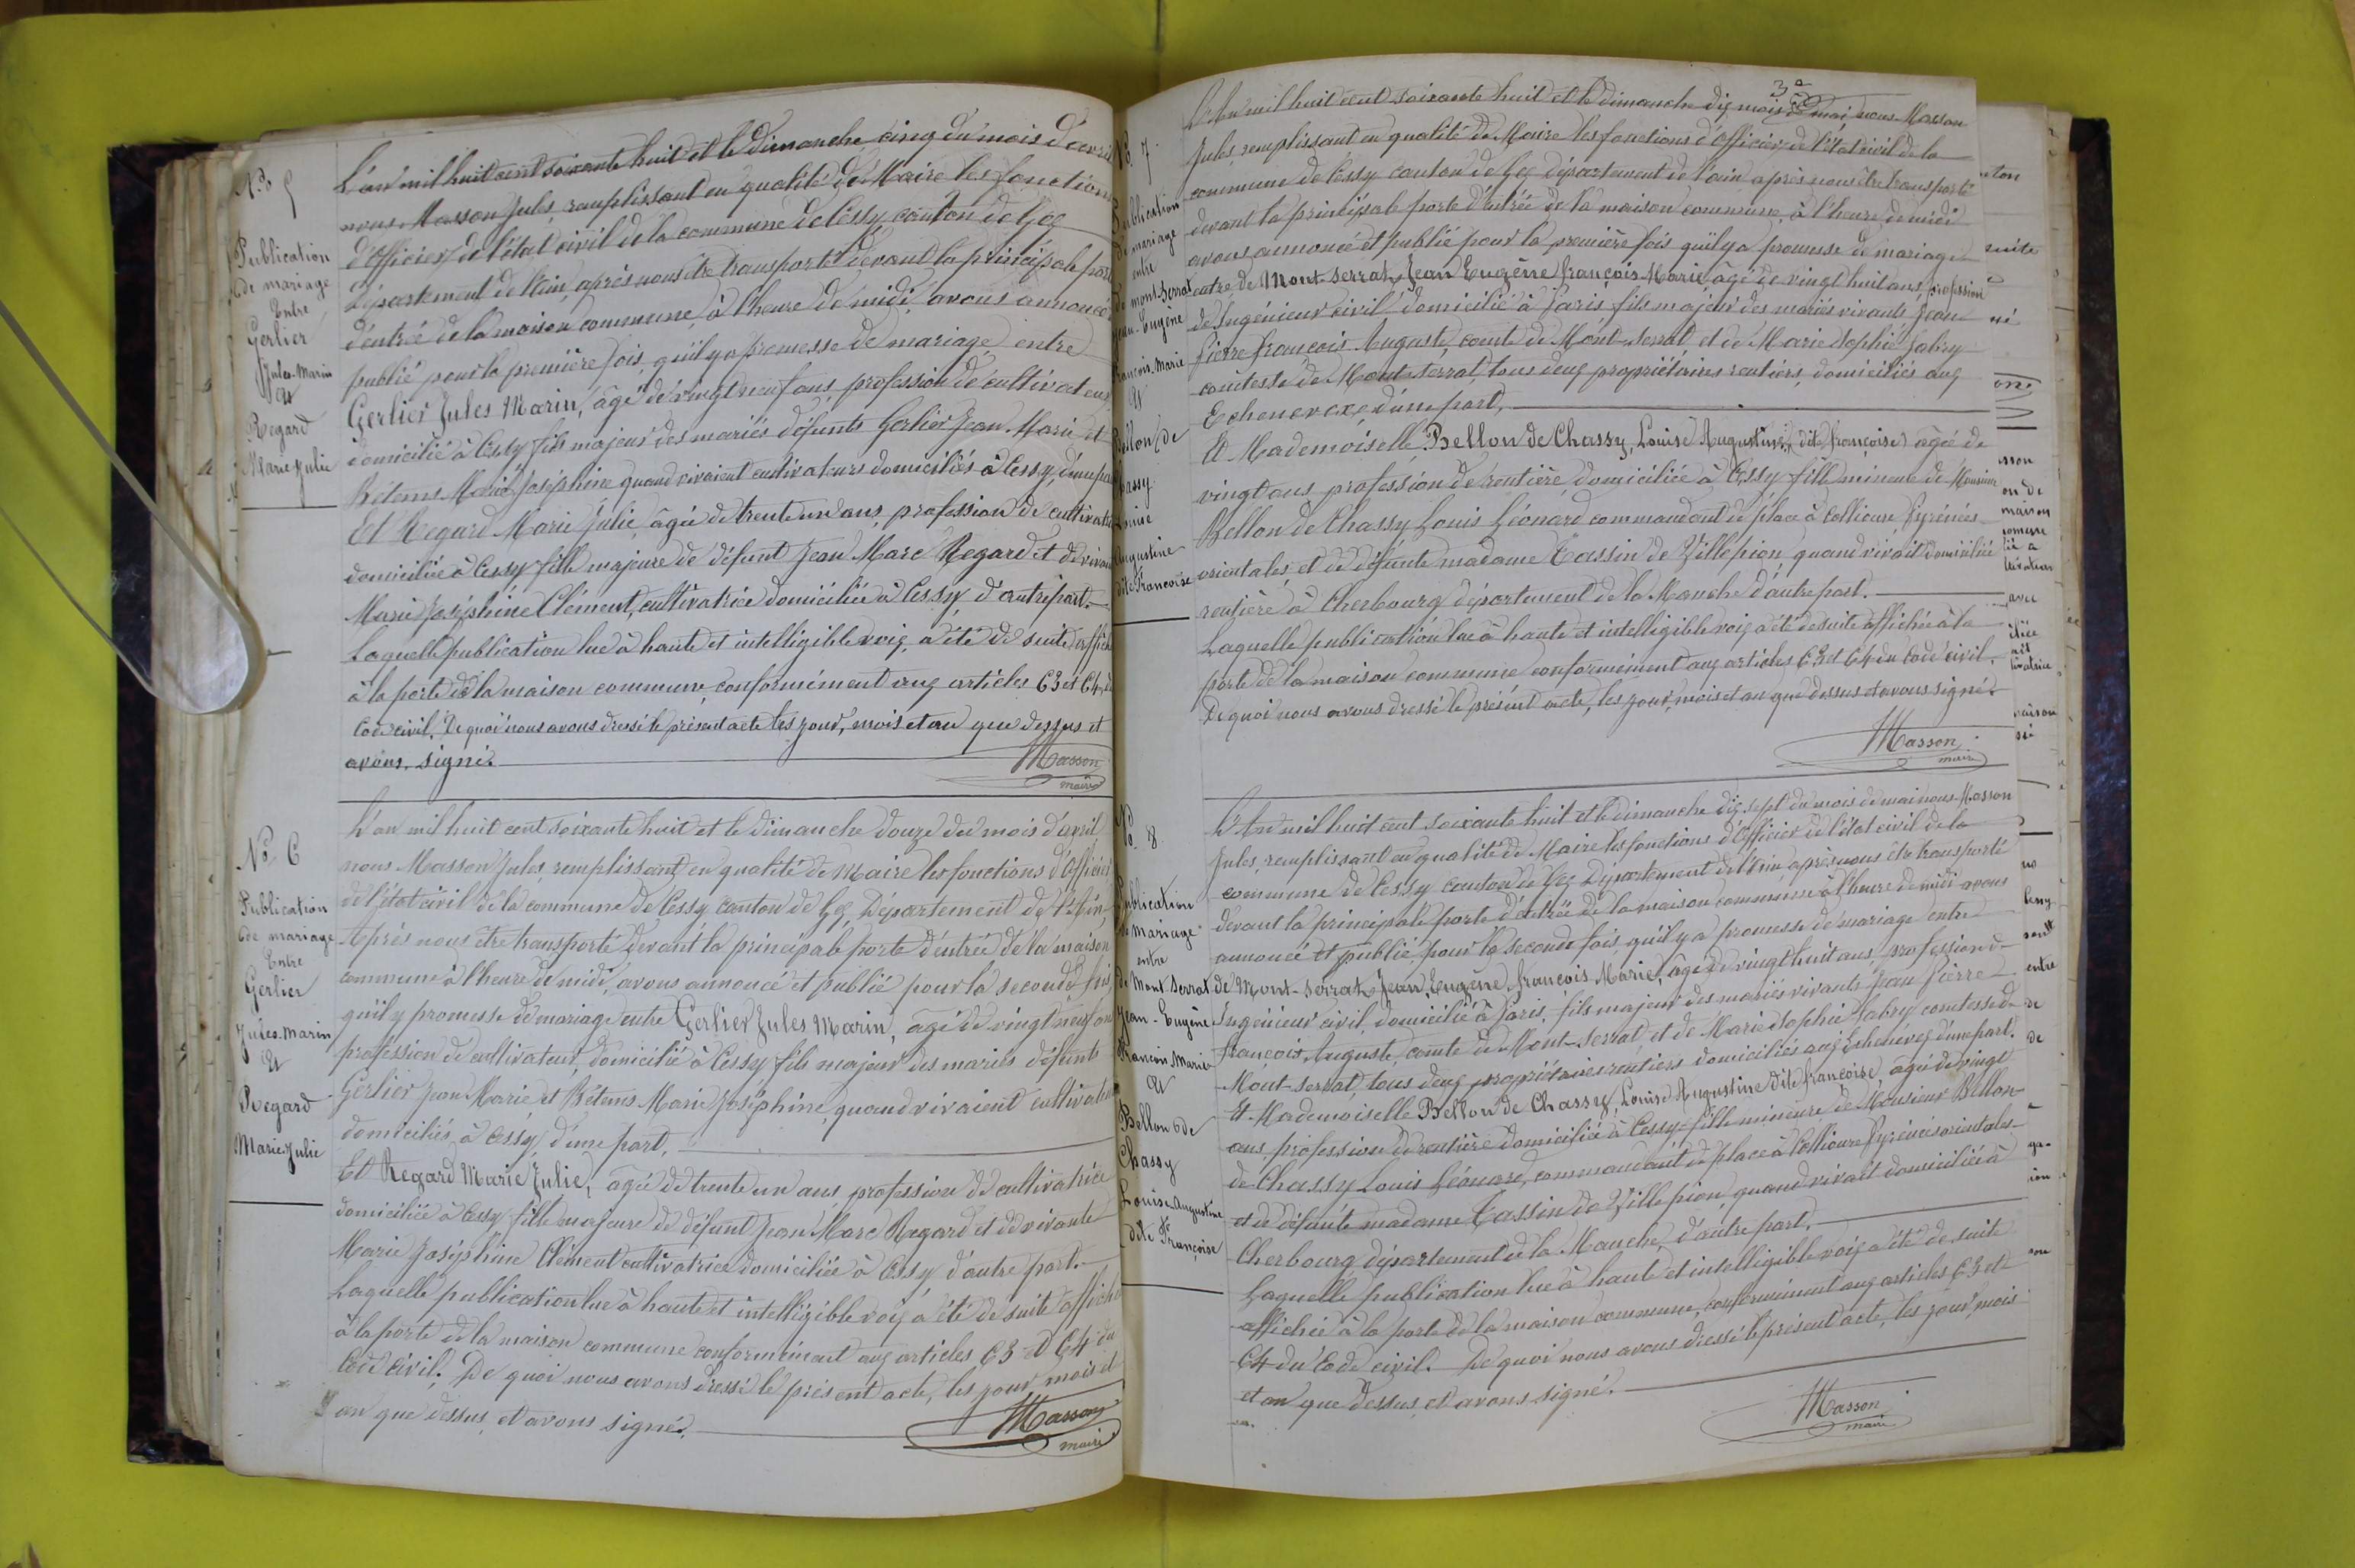 No 5
Publication
de mariage
Entre
Gerlier
Jules-Marin
Et
Regard
Marie Julie
L'an mil huit cent soixante huit et le dimanche cinq du mois d'avril
nous Masson Jules, remplissant en qualité de Maire les fonctions
d'Officier de l'état civil de la commune de Cessy, canton de Gex
département de l'Ain, après nous être transporté devant la principale porte
d'entrée de la maison commune, à l'heure de midi, avons annoncé
publié pour la première fois, qu'il y a promesse de mariage entre
Gerlier Jules Marin, âgé de vingt neuf ans, profession de cultivateur
domicilié à Cessy fils majeur des mariés défunts Gerlier Jean Marie et
Bétems Marie Joséphine quand vivaient cultivateurs domiciliés à Cessy, d'une part
Et Regard Marie Julie, âgée de trente un ans, profession de cultivatrice
domiciliée à Cessy fille majeure de défunt Jean Marc Regard et de vivante
Marie Joséphine Clément, cultivatrice domiciliée à Cessy, d'autre part.
Laquelle publication lue à haute et intelligible voix, a été de suite affichée
à la porte de la maison commune, conformément aux articles 63 et 64 du
Code civil. De quoi nous avons dressé le présent acte les jour, mois et an que dessus et
avons signé.
Masson
maire
No 6
Publication
de mariage
Entre
Gerlier
Jules-Marin
Et
Regard
Marie Julie
L'an mil huit cent soixante huit et le dimanche douze du mois d'avril
nous Masson Jules, remplissant en qualité de Maire les fonctions d'Officier
de l'état civil de la commune de Cessy, canton de Gex, Département de l'Ain,
Après nous être transporté devant la principale porte d'entrée de la maison
commune à l'heure de midi, avons annoncé et publié pour la seconde fois,
qu'il y promesse de mariage entre Gerlier Jules Marin, âgé de vingt neuf ans
profession de cultivateur, domicilié à Cessy fils majeur des mariés défunts
Gerlier Jean Marie et Bétems Marie Joséphine, quand vivaient cultivateurs
domiciliés à Cessy, d'une part.
Et Regard Marie Julie, âgée de trente un ans, profession de cultivatrice
domiciliée à Cessy fille majeure de défunt Jean Marc Regard et de vivante
Marie Joséphine Clément cultivatrice domiciliée à Cessy, d'autre part.
Laquelle publication lue à haute et intelligible voix a été de suite affichée
à la porte de la maison commune conformément aux articles 63 et 64 du
Code civil. De quoi nous avons dressé le présent acte, les jour mois et
an que dessus, et avons signé.
Masson
maire
3e
No 7
Publication
de mariage
entre
de mont-Serrat
Jean-Eugène
François Marie
Et
Bellon de
Chassy
Louise
Augustine
dite Françoise
L'An mil huit cent soixante huit et le dimanche dix mois de mai nous Masson
Jules, remplissant en qualité de Maire les fonctions d'Officier de l'état civil de la
commune de Cessy canton de Gex département de l'ain après nous être transporté
devant la principale porte d'entrée de la maison commune, à l'heure de midi
avons annoncé et publié pour la première fois qu'il y a promesse de mariage
entre de Mont-Serrat Jean Eugène françois-Marie âgé de vingt huit ans, profession
de Ingénieur civil domicilié à Paris fils majeur des mariés vivants Jean
Pierre françois Auguste, comte de Mont-Serrat et de Marie Sophie Fabry
comtesse de Mont-Serrat, tous deux propriétaires rentiers, domiciliés aux
Echenevex, d'une part,
Et Mademoiselle Bellon de Chassy, Louise Augustine, (dite françoise) âgée de
vingt ans profession de rentière, domiciliée à Cessy fille mineure de Monsieur
Bellon de Chassy Louis Léonard commandant de place à Collioure, Pyrénées
orientales, et de défunte madame Tassin de Villepion, quand vivait domiciliée
rentière à Cherbourg département de la Manche d'autre part.
Laquelle publication lue à haute et intelligible voix a été de suite affichée à la
porte de la maison commune conformément aux articles 63 et 64 du Code civil.
De quoi nous avons dressé le présent acte, les jour, mois et an que dessus et avons signé.
Masson
maire
No 8
Publication
de Mariage
entre
de Mont Serrat
Jean-Eugène
François Marie
Et
Bellon de
Chassy
Louise-Augustine
dite Françoise
L'An mil huit cent soixante huit et le dimanche dix sept du mois de mai nous Masson
Jules, remplissant en qualité de Maire les fonctions d'Officier de l'état civil de la
commune de Cessy canton de Gex Département de l'Ain après nous être transporté
devant la principale porte d'entrée de la maison commune à l'heure de midi avons
annoncé et publié pour la seconde fois, qu'il y a promesse de mariage entre
de Mont-Serrat Jean, Eugène, françois Marie, âgé de vingt huit ans, profession de
Ingénieur civil, domicilié à Paris, fils majeur des mariés vivants Jean Pierre
françois Auguste, comte de Mont-Serrat, et de Marie Sophie Fabry comtesse de
Mont-Serrat, tous deux propriétaires rentiers domiciliés aux Echenevex d'une part.
Et Mademoiselle Bellon de Chassy, Louise Augustine dite françoise, âgée de vingt
ans profession de rentière domiciliée à Cessy fille mineure de Monsieur Bellon
de Chassy Louis Léonard, commandant de place à Collioure Pyrénées orientales
et de défunte madame Tassin de Villepion, quand vivait domiciliée à
Cherbourg département de la Manche, d'autre part.
Laquelle publication lue à haute et intelligible voix a été de suite
affichée à la porte de la maison commune, conformément aux articles 63 et
64 du Code civil. De quoi nous avons dressé le présent acte, les jour, mois
et an que dessus, et avons signé.
Masson
maire